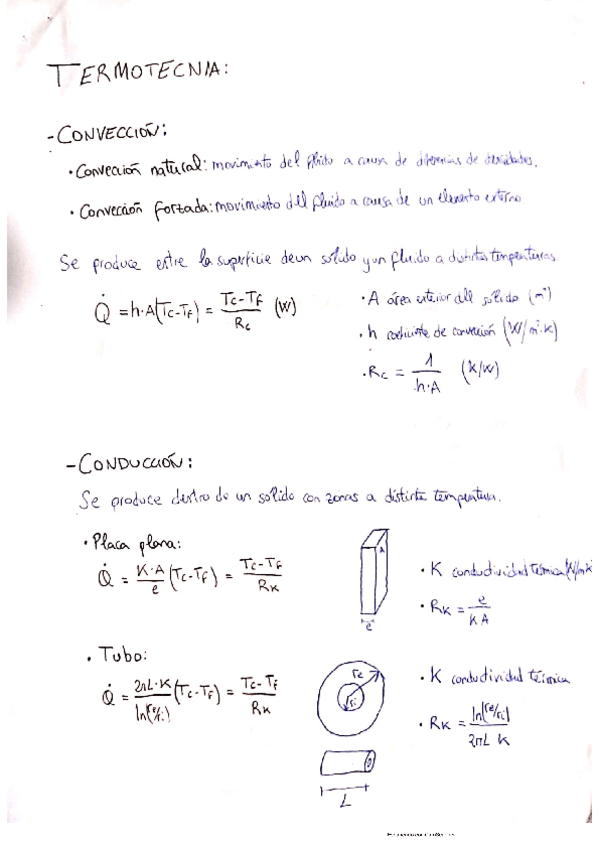 TERMOTECNIA:
- CONVECCIÓN:
· Convección natural: movimiento del fluido a causa de diferencias de densidades.
· Convección forzada: movimiento del fluido a causa de un elemento externo
Se produce entre la superficie de un sólido y un fluido a distintas temperaturas
Q̇ = h·A(Tc-Tf) = (Tc-Tf)/Rc (W)
· A área exterior del sólido (m²)
· h coeficiente de convección (W/m²·K)
· Rc = 1/(h·A) (K/W)
- CONDUCCIÓN:
Se produce dentro de un sólido con zonas a distinta temperatura.
· Placa plana:
Q̇ = (K·A)/e (Tc-Tf) = (Tc-Tf)/RK
A
e
· K conductividad térmica (W/mK
· RK = e/(KA)
· Tubo:
Q̇ = (2πL·K)/ln(re/ri) (Tc-Tf) = (Tc-Tf)/RK
re
ri
L
· K conductividad térmica
· RK = ln(re/ri)/(2πL K)